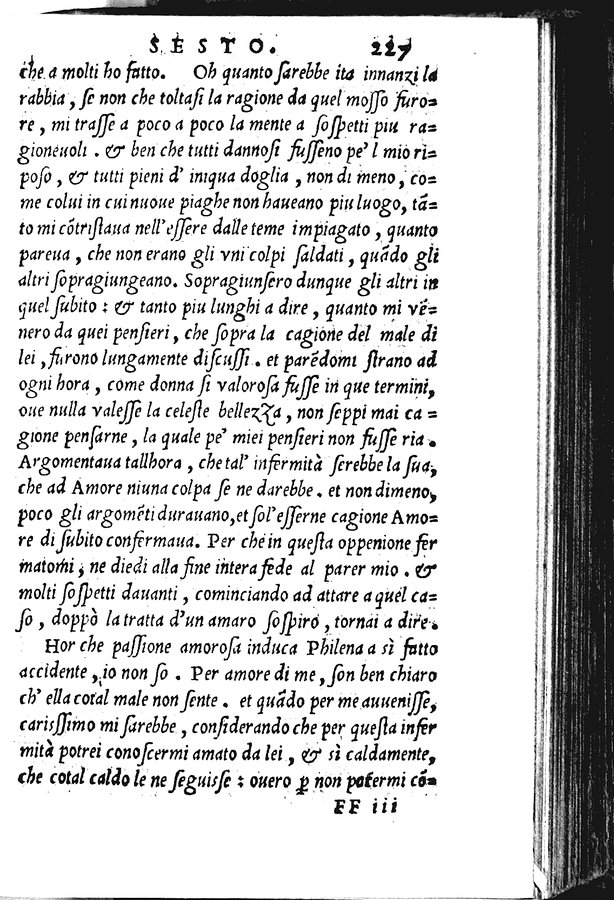 SESTO. 227
che a molti ho fatto. Oh quanto ſarebbe ita innanzi la
rabbia, ſe non che toltaſi la ragione da quel moſſo furo=
re, mi traſſe a poco a poco la mente a ſoſpetti piu ra=
gioneuoli. & ben che tutti dannoſi fuſſeno pe' l mio ri=
poſo, & tutti pieni d' iniqua doglia, non di meno, co=
me colui in cui nuoue piaghe non haueano piu luogo, tã=
to mi cõtriſtaua nell'eſſere dalle teme impiagato, quanto
pareua, che non erano gli vni colpi ſaldati, quãdo gli
altri ſopragiungeano. Sopragiunſero dunque gli altri in
quel ſubito: & tanto piu lunghi a dire, quanto mi vẽ=
nero da quei penſieri, che ſopra la cagione del male di
lei, furono lungamente diſcuſſi. et parẽdomi ſtrano ad
ogni hora, come donna ſi valoroſa fuſſe in que termini,
oue nulla valeſſe la celeſte bellezza, non ſeppi mai ca=
gione penſarne, la quale pe' miei penſieri non fuſſe ria.
Argomentaua tallhora, che tal' infermità ſerebbe la ſua,
che ad Amore niuna colpa ſe ne darebbe. et non dimeno,
poco gli argomẽti durauano, et ſol'eſſerne cagione Amo=
re di ſubito confermaua. Per che in queſta oppenione fer
matomi, ne diedi alla fine intera fede al parer mio. &
molti ſoſpetti dauanti, cominciando ad attare a quel ca=
ſo, doppò la tratta d'un amaro ſoſpiro, tornai a dire.
Hor che paſſione amoroſa induca Philena a sì fatto
accidente, io non ſo. Per amore di me, ſon ben chiaro
ch' ella cotal male non ſente. et quãdo per me auueniſſe,
cariſſimo mi ſarebbe, conſiderando che per queſta infer
mità potrei conoſcermi amato da lei, & sì caldamente,
che cotal caldo le ne ſeguiſſe: ouero ꝑ non potermi cõ=
FF iii